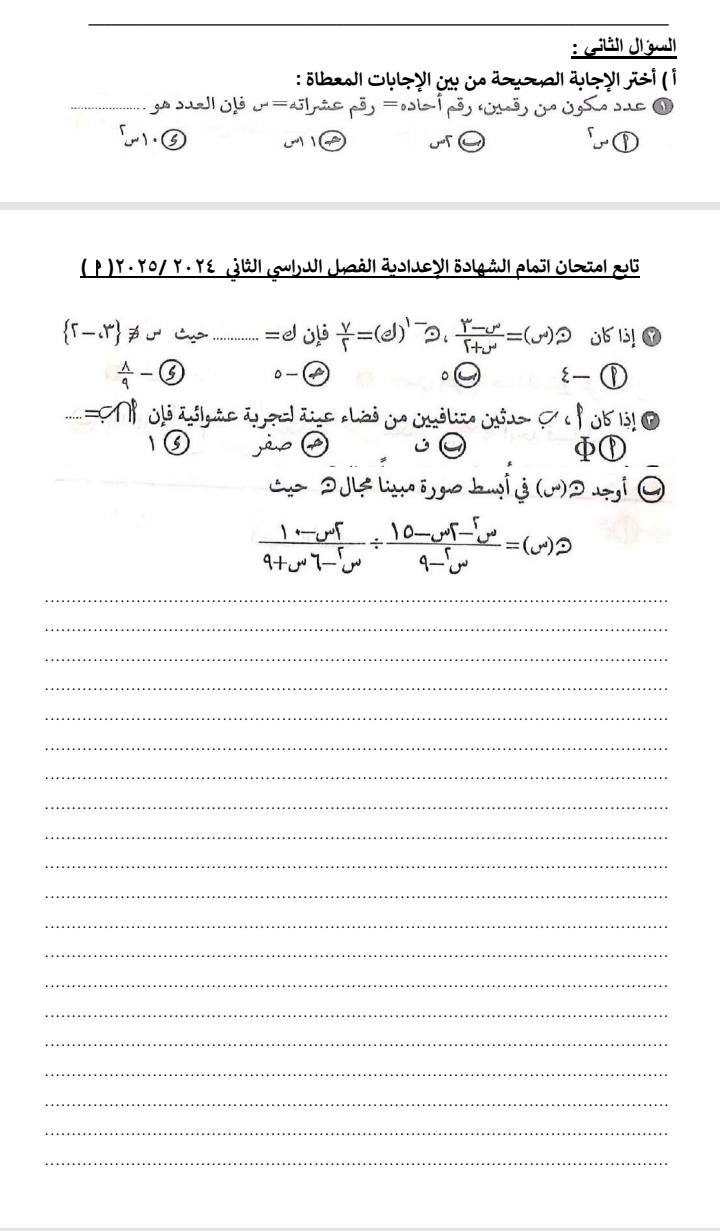 السؤال الثاني :
أ ) أختر الإجابة الصحيحة من بين الإجابات المعطاة :
١ عدد مكون من رقمين، رقم أحاده = رقم عشراته = س فإن العدد هو ....................
أ س٢ ب ٢س ج ١١س د ١٠س٢
تابع امتحان اتمام الشهادة الإعدادية الفصل الدراسي الثاني ٢٠٢٤ /٢٠٢٥( أ )
٢ إذا كان ن(س)= (س−٣)/(س+٢) ، ن−١(ك)= ٧/٢ فإن ك= ............ حيث س ∉ {٣، −٢}
أ −٤ ب ٥ ج −٥ د −٨/٩
٣ إذا كان أ ، ب حدثين متنافيين من فضاء عينة لتجربة عشوائية فإن أ∩ب= .....
أ Φ ب ف ج صفر د ١
ب أوجد ن(س) في أبسط صورة مبينا مجال ن حيث
ن(س)= (س٢−٢س−١٥)/(س٢−٩) ÷ (٢س−١٠)/(س٢−٦س+٩)